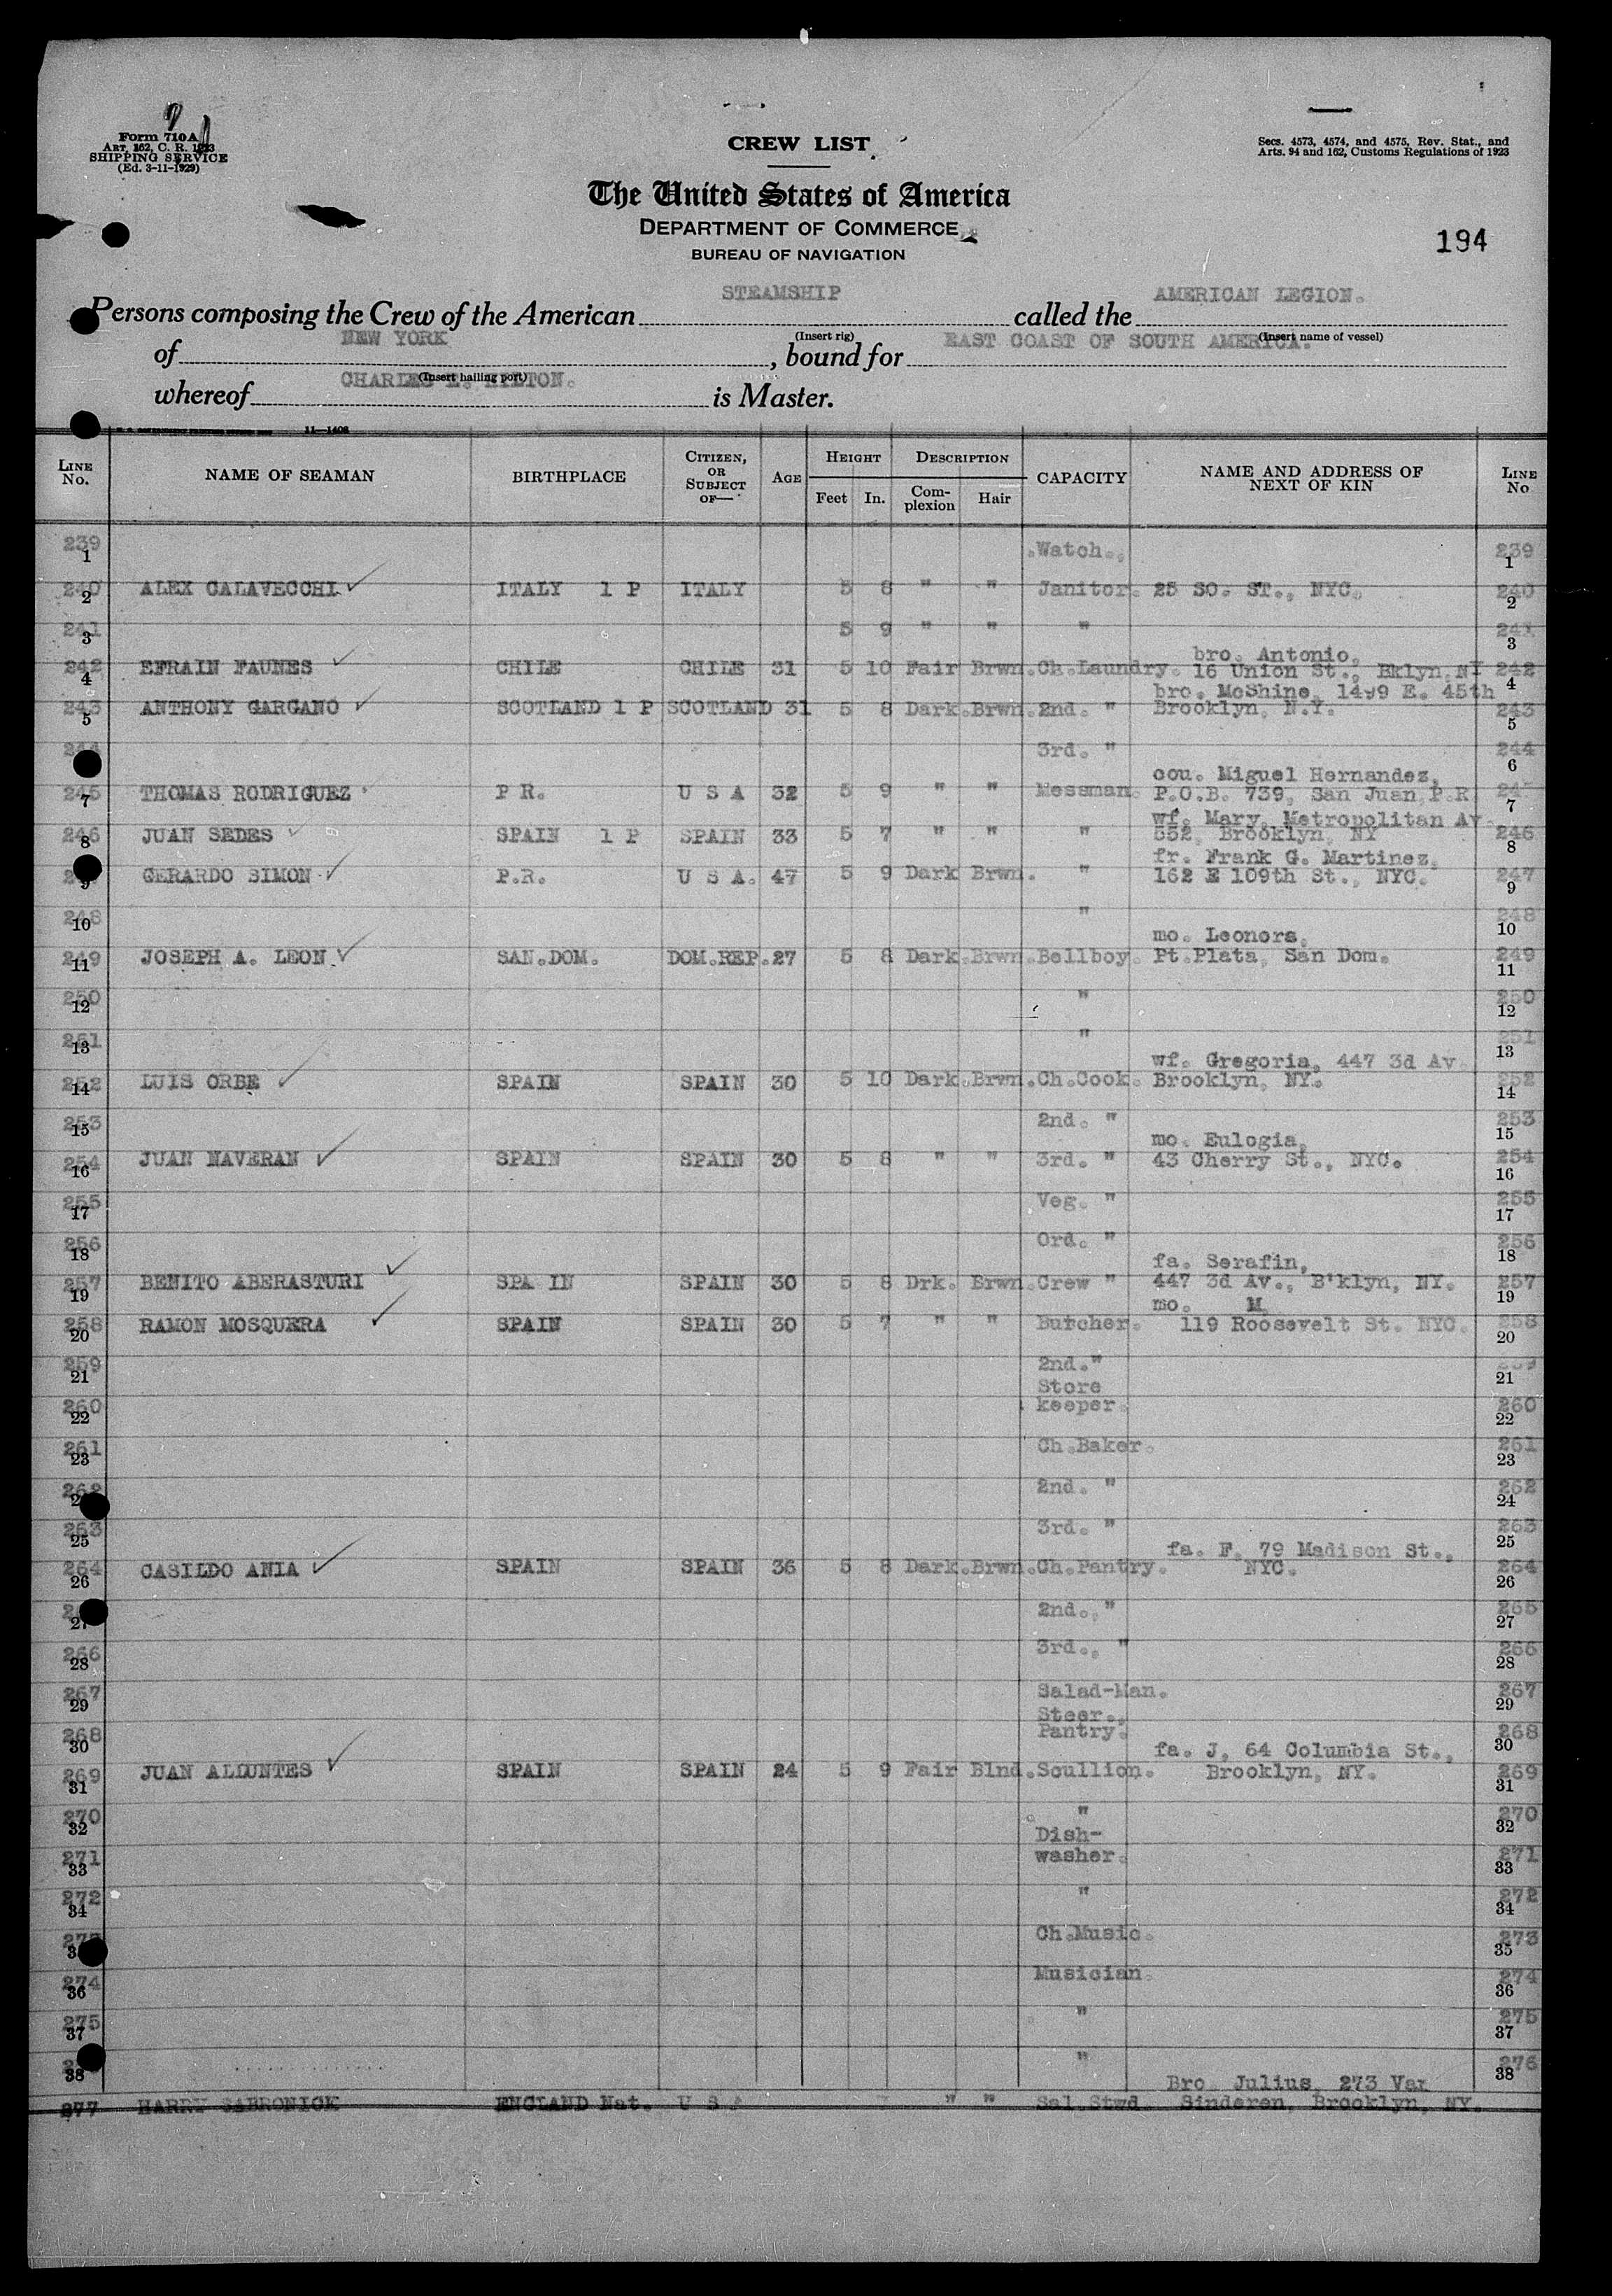 Form 710A
ART. 162, C. R. 1923
SHIPPING SERVICE
(Ed. 3-11-1929)
CREW LIST
Secs. 4573, 4574, and 4575, Rev. Stat., and
Arts. 94 and 162, Customs Regulations of 1923
The United States of America
DEPARTMENT OF COMMERCE
BUREAU OF NAVIGATION
194
Persons composing the Crew of the American STEAMSHIP called the AMERICAN LEGION.
(Insert rig) (Insert name of vessel)
of NEW YORK, bound for EAST COAST OF SOUTH AMERICA.
(Insert hailing port)
whereof CHARLES HILTON. is Master.
11—1408
LINE No. NAME OF SEAMAN BIRTHPLACE CITIZEN, OR SUBJECT OF— AGE HEIGHT Feet In. DESCRIPTION Complexion Hair CAPACITY NAME AND ADDRESS OF NEXT OF KIN LINE No
239 1 Watch. 239 1
240 2 ALEX CALAVECCHI ITALY 1 P ITALY 5 8 " " Janitor. 25 SO. ST., NYC. 240 2
241 3 5 9 " " " 241 3
bro. Antonio,
242 4 EFRAIN FAUNES CHILE CHILE 31 5 10 Fair Brwn. Ch.Laundry. 16 Union St., Bklyn,NY 242 4
bro. McShine, E. 45th
243 5 ANTHONY GARGANO SCOTLAND 1 P SCOTLAND 31 5 8 Dark. Brwn. 2nd. " Brooklyn, N.Y. 243 5
244 3rd. " 244 6
cou. Miguel Hernandez,
245 7 THOMAS RODRIGUEZ P R. U S A 32 5 9 " " Messman. P.O.B. 739, San Juan,P.R 245 7
wf. Mary, Metropolitan Av.
246 8 JUAN SEDES SPAIN 1 P SPAIN 33 5 7 " " " 552, Brooklyn, NY 246 8
fr. Frank G. Martinez,
9 GERARDO SIMON P.R. U S A. 47 5 9 Dark Brwn. " 162 E 109th St., NYC. 247 9
248 10 " 248 10
mo. Leonora,
249 11 JOSEPH A. LEON SAN.DOM. DOM.REP. 27 5 8 Dark.Brwn. Bellboy. Pt.Plata, San Dom. 249 11
250 12 " 250 12
251 13 " 251 13
wf. Gregoria, 447 3d Av.
252 14 LUIS ORBE SPAIN SPAIN 30 5 10 Dark.Brwn. Ch.Cook. Brooklyn, NY. 252 14
253 15 2nd. " 253 15
mo. Eulogia,
254 16 JUAN NAVERAN SPAIN SPAIN 30 5 8 " " 3rd. " 43 Cherry St., NYC. 254 16
255 17 Veg. " 255 17
256 18 Ord. " 256 18
fa. Serafin,
257 19 BENITO ABERASTURI SPA IN SPAIN 30 5 8 Drk. Brwn. Crew " 447 3d Av., B'klyn, NY. 257 19
mo. M
258 20 RAMON MOSQUERA SPAIN SPAIN 30 5 7 " " Butcher. 119 Roosevelt St. NYC. 258 20
259 21 2nd." 21
Store
260 22 keeper. 260 22
261 23 Ch.Baker. 261 23
262 2nd. " 262 24
263 25 3rd. " 263 25
fa. F, 79 Madison St.,
264 26 CASILDO ANIA SPAIN SPAIN 36 5 8 Dark.Brwn. Ch.Pantry. NYC. 264 26
27 2nd.," 265 27
266 28 3rd., " 266 28
267 29 Salad-Man. 267 29
Steer.,
268 30 Pantry. 268 30
fa. J, 64 Columbia St.,
269 31 JUAN ALLUNTES SPAIN SPAIN 24 5 9 Fair Blnd. Scullion. Brooklyn, NY. 269 31
270 32 " 270 32
Dish-
271 33 washer. 271 33
272 34 " 272 34
Ch.Music. 273 35
274 36 Musician. 274 36
275 37 " 275 37
38 " 276 38
Bro Julius 273 Van
277 HARRY SABRONICK ENGLAND Nat. U S A " " Sal.Stwd. Sinderen, Brooklyn, NY.